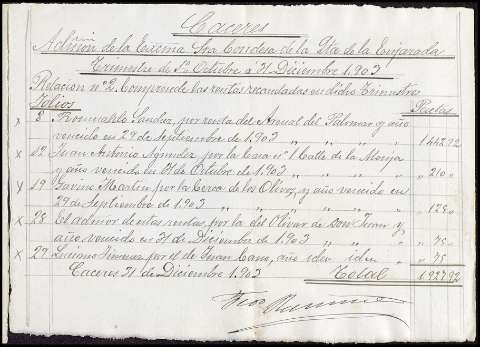 Caceres
Admon de la Excma Sra Condesa de la Qta de la Enjarada
Trimestre de 1º Octubre á 31 Diciembre 1.903
Relacion nº 2. Comprende las rentas recaudadas en dicho Trimestre
Folios Pesetas
x 8 Romualdo Sanchez, por renta del Arenal del Palomar y año
vencido en 29 de Septiembre de 1.903 " " " " 1.442 92
x 12 Juan Antonio por la Casa nº 1 Calle de la Monja
y año vencido en 31 de Octubre de 1.903 " " " " 210 "
y 19 Martin por la Cerca de los Olivos, y año vencido en
29 de Septiembre de 1.903 " " " " " 125 "
x 28 El admor de estas rentas, por la del Olivar de Don Juan y
año vencido en 31 de Diciembre de 1.903 " " " 75 "
x 29 Jimenez por el de Juan Cano, año idem idem " 75
Caceres 31 de Diciembre 1.903 Total 1.927 92